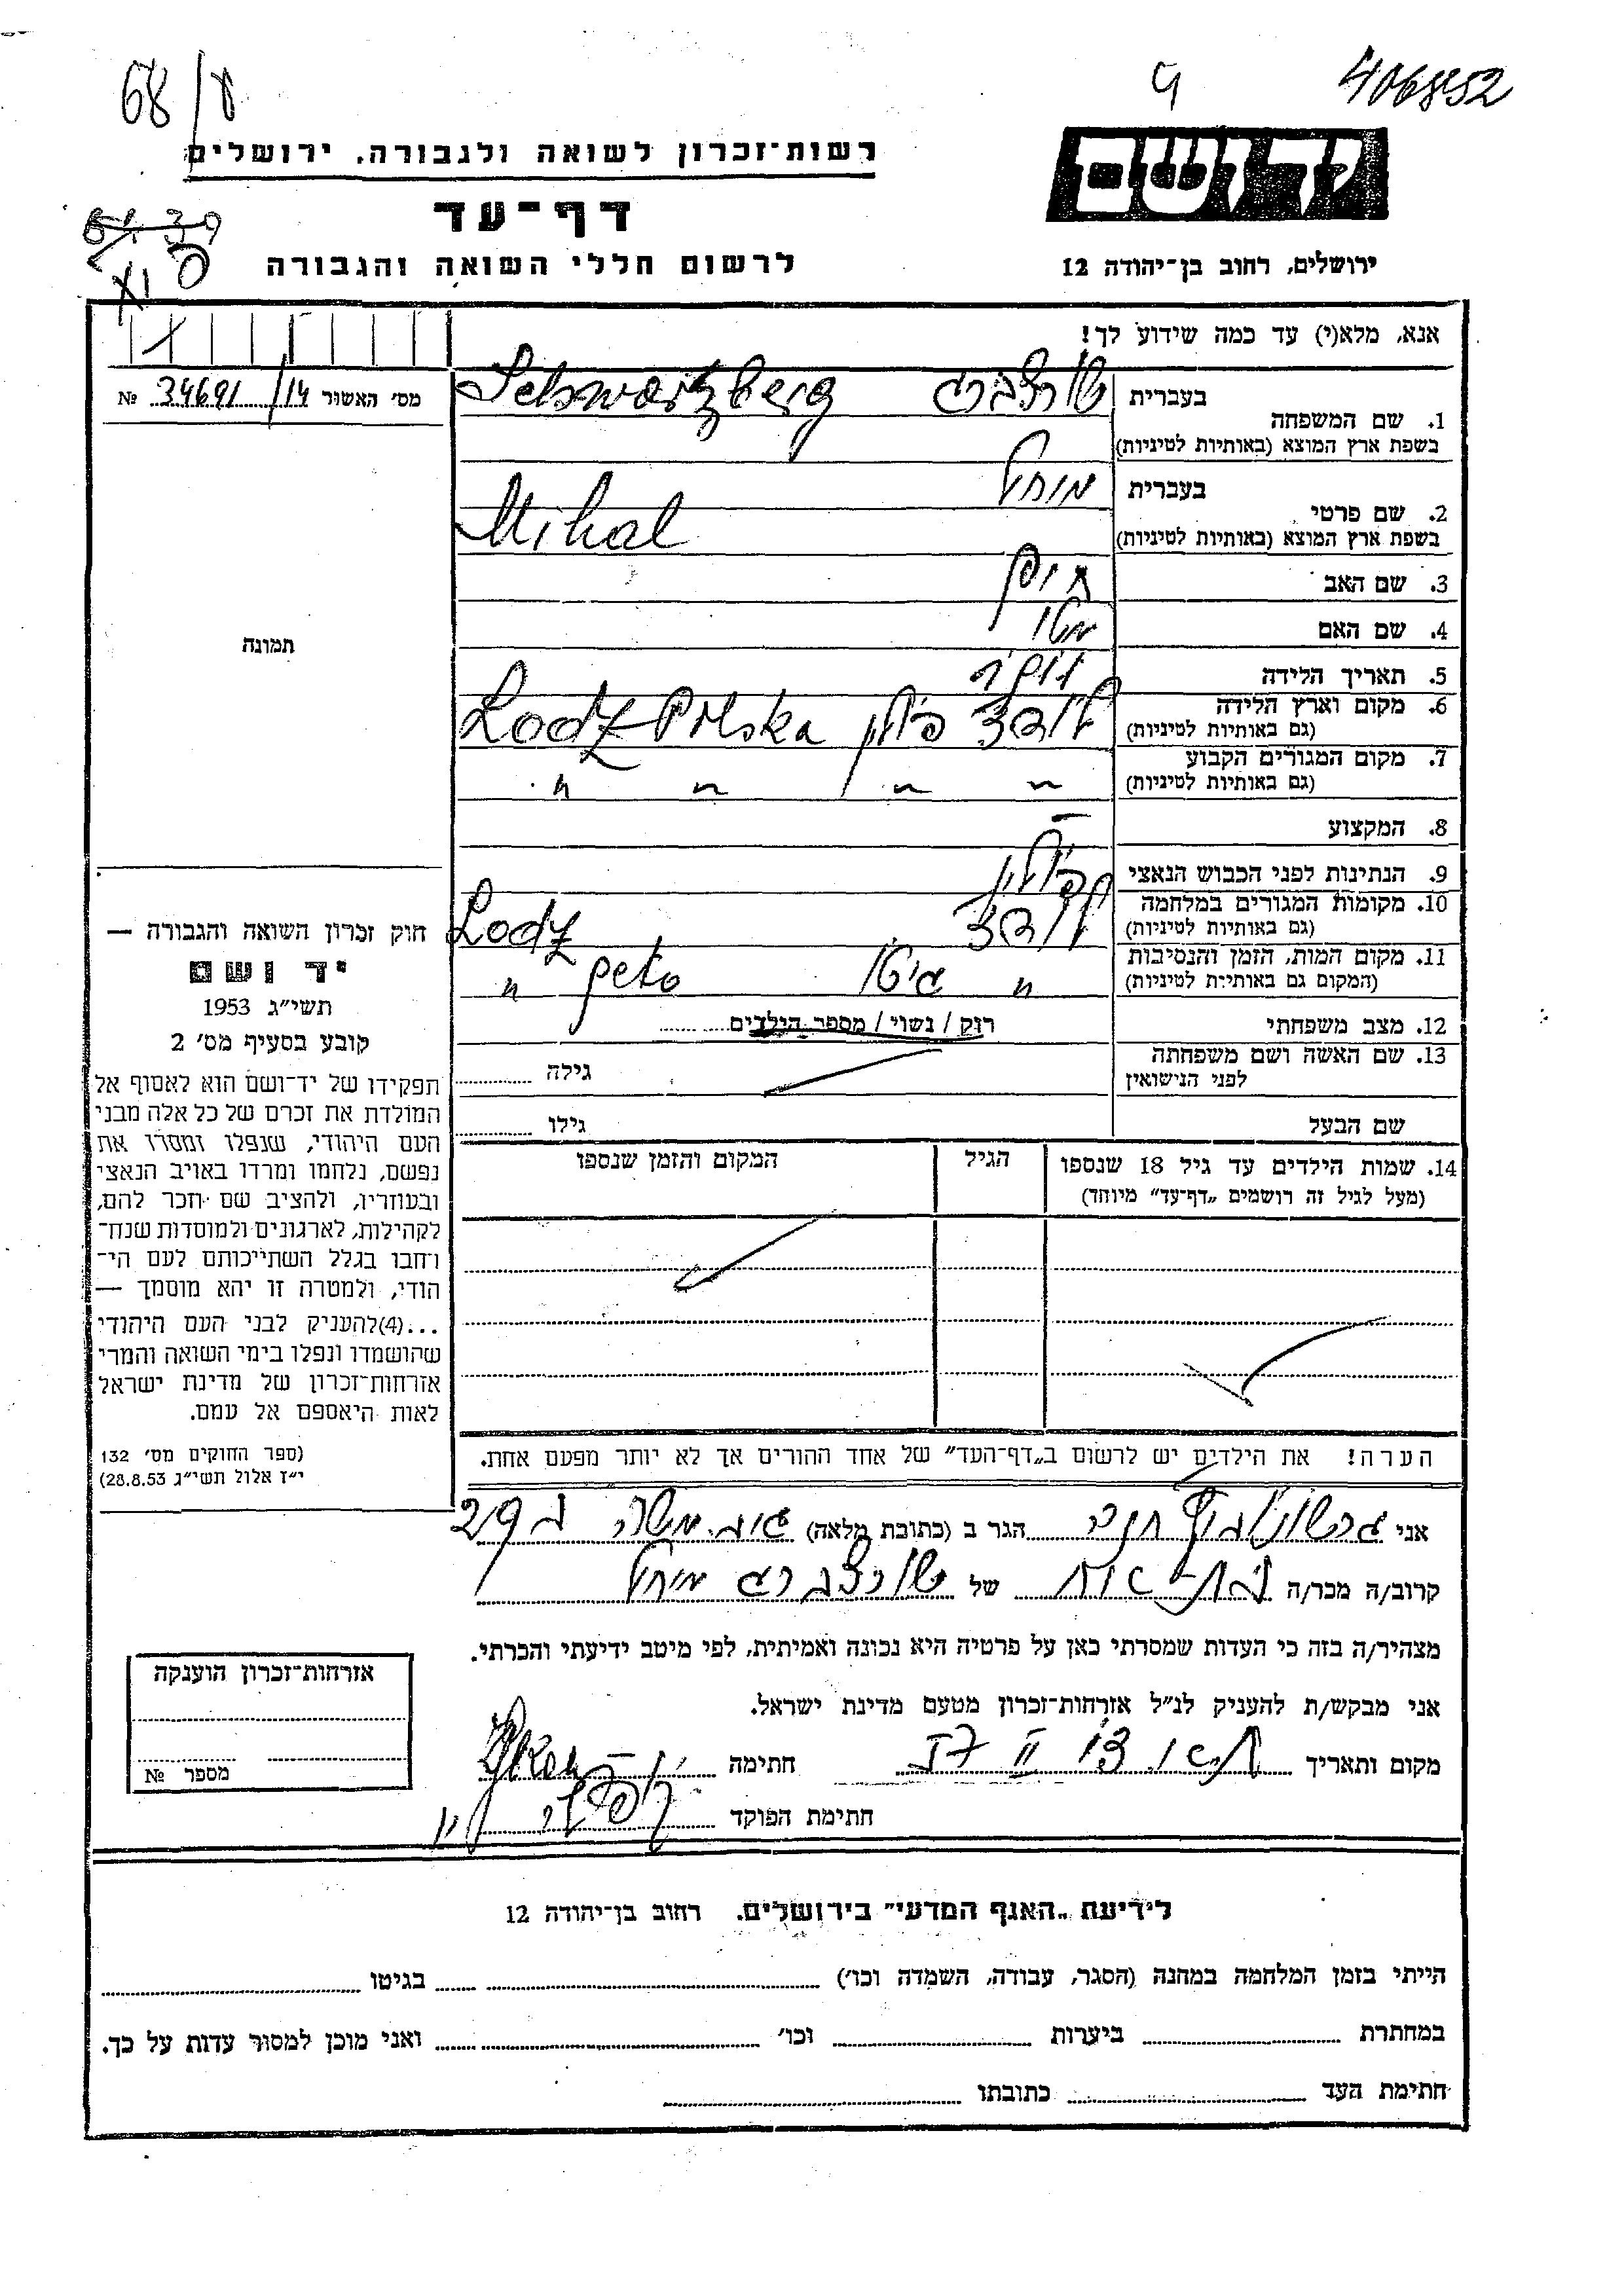 68/8
9
406852
רשות־זכרון לשואה ולגבורה. ירושלים
ידושם
דף־עד
לרשום חללי השואה והגבורה
ירושלים, רחוב בן־יהודה 12
אנא, מלא(י) עד כמה שידוע לך!
מס׳ האשור 34691/14 №
1. שם המשפחה
בעברית שורצברג Schwartzberg
בשפת ארץ המוצא (באותיות לטיניות)
2. שם פרטי
בעברית
בשפת ארץ המוצא (באותיות לטיניות) Mihal
3. שם האב
4. שם האם
תמונה
5. תאריך הלידה
6. מקום וארץ הלידה לודז פולין Lodz Polska
(גם באותיות לטיניות)
7. מקום המגורים הקבוע " " " "
(גם באותיות לטיניות)
8. המקצוע –
9. הנתינות לפני הכבוש הנאצי פולין
10. מקומות המגורים במלחמה לודז Lodz
(גם באותיות לטיניות)
11. מקום המות, הזמן והנסיבות " גיטו geto "
(המקום גם באותיות לטיניות)
12. מצב משפחתי רוק / נשוי / מספר הילדים
13. שם האשה ושם משפחתה
לפני הנישואין גילה
שם הבעל גילו
14. שמות הילדים עד גיל 18 שנספו
(מעל לגיל זה רושמים „דף־עד” מיוחד)
הגיל
המקום והזמן שנספו
הערה! את הילדים יש לרשום ב„דף־העד” של אחד ההורים אך לא יותר מפעם אחת.
חוק זכרון השואה והגבורה —
יד ושם
תשי״ג 1953
קובע בסעיף מס׳ 2
תפקידו של יד־ושם הוא לאסוף אל
המולדת את זכרם של כל אלה מבני
העם היהודי, שנפלו ומסרו את
נפשם, נלחמו ומרדו באויב הנאצי
ובעוזריו, ולהציב שם וזכר להם,
לקהילות, לארגונים ולמוסדות שנח־
רחבו בגלל השתייכותם לעם הי־
הודי, ולמטרה זו יהא מוסמך —
...(4)להעניק לבני העם היהודי
שהושמדו ונפלו בימי השואה והמרי
אזרחות־זכרון של מדינת ישראל
לאות היאספם אל עמם.
(ספר החוקים מס׳ 132
י״ז אלול תשי״ג 28.8.53)
אני הגר ב (כתובת מלאה)
קרוב/ה מכר/ה של שורצברג
מצהיר/ה בזה כי העדות שמסרתי כאן על פרטיה היא נכונה ואמיתית, לפי מיטב ידיעתי והכרתי.
אני מבקש/ת להעניק לנ״ל אזרחות־זכרון מטעם מדינת ישראל.
מקום ותאריך חתימה
חתימת הפוקד
אזרחות־זכרון הוענקה
מספר №
לידיעת „האגף המדעי” בירושלים. רחוב בן־יהודה 12
הייתי בזמן המלחמה במחנה (הסגר, עבודה, השמדה וכו׳) בגיטו
במחתרת ביערות וכו׳ ואני מוכן למסור עדות על כך.
חתימת העד כתובתו